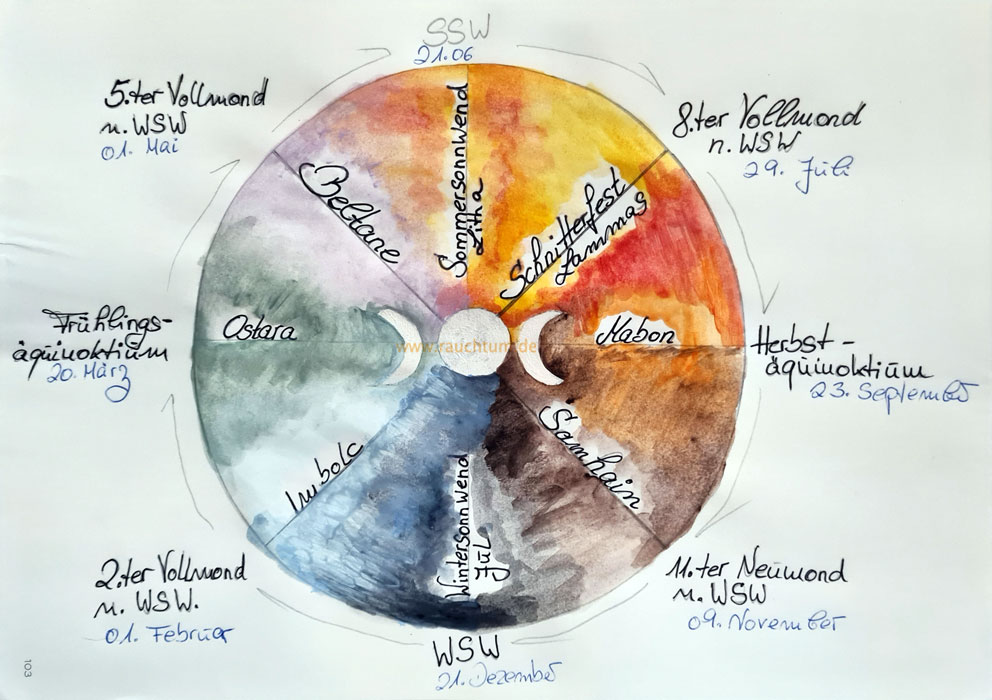 SSW
21.06
5.ter Vollmond
n. WSW
01. Mai
8.ter Vollmond
n. WSW
29. Juli
Beltane
Sommersonnwend
Litha
Schnitterfest
Lammas
Frühlings-
äquinoktium
20. März
Ostara
www.rauchtum.de
Mabon
Herbst-
äquinoktium
23. September
Imbolc
Wintersonnwend
Jul
Samhain
2.ter Vollmond
n. WSW.
01. Februar
11.ter Neumond
n. WSW
09. November
WSW
21. Dezember
103